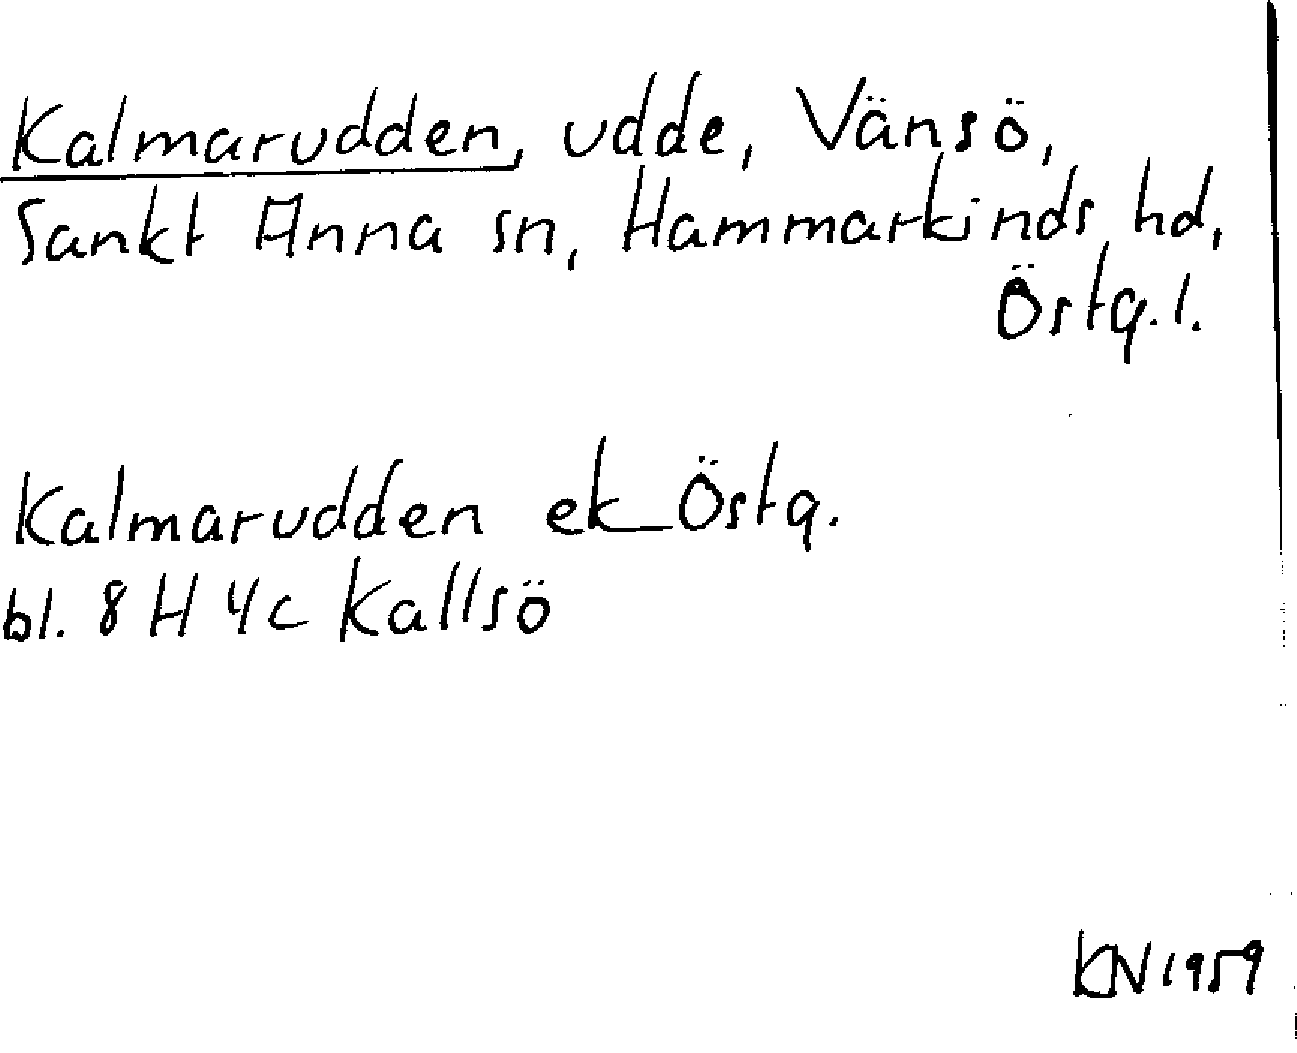 Kalmarudden, udde, Vänsö,
Sankt Anna sn, Hammarkinds hd,
Östg.l.
Kalmarudden ek Östg.
bl. 8 H 4c Kallsö
KN 1959